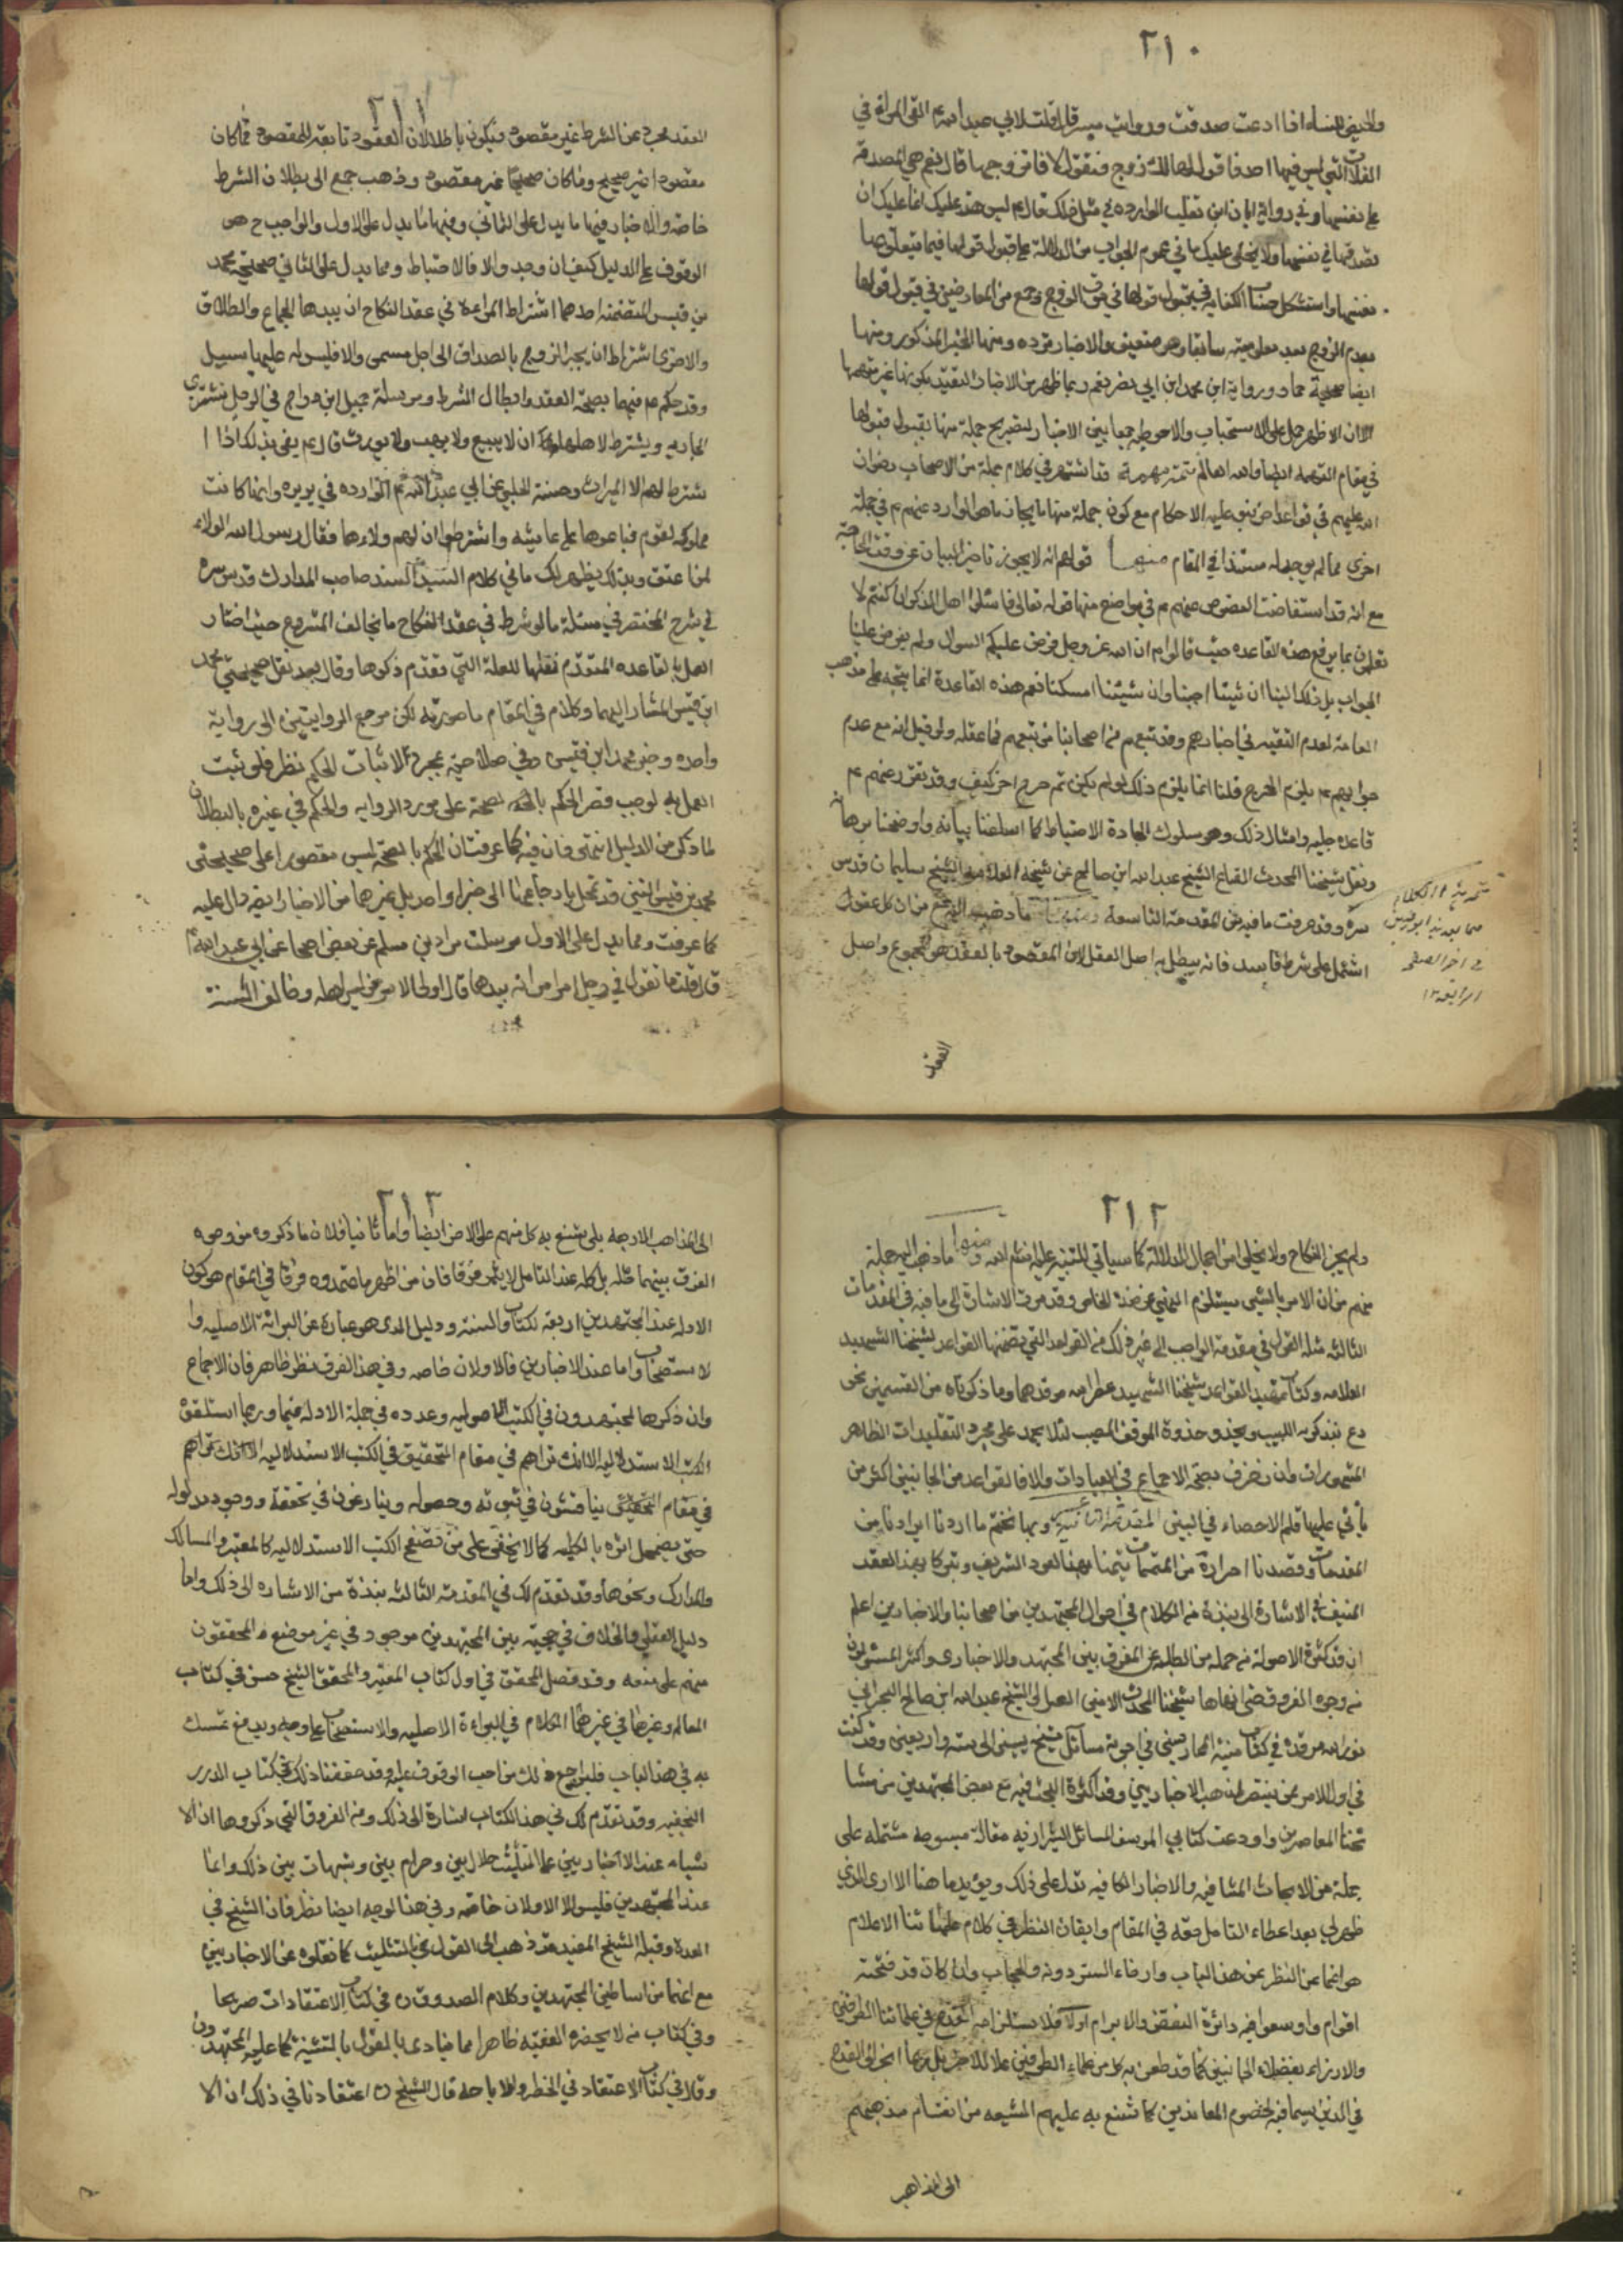 ٢١٠
والحيض للنساء اذا ادعت صدقت ورواية ميسر قال قلت لابي عبد الله ع القى المراة في
الفلاة التي ليس فيها احد فاقول لها الك زوج فتقول لا فاتزوجها قال نعم هي المصدقة
على نفسها وفي رواية ابان ابن تغلب الوارده في مثل ذلك قال ع ليس هذا عليك انما عليك ان
تصدقها في نفسها ولا يخفى عليك ما في عموم الجواب من الدلالة على قبول قولها فيما يتعلق بها
نفسها واستشكل صاحب الكفاية في قبول قولها في موت الزوج وجمع من المعارضين في قبول قولها
بعدم الزوج بعد معلوميته سابقا وهو ضعيف والاخبار ترده ومنها الخبر المذكور ومنها
ايضا صحيحة حماد ورواية ابن محمد ابن ابي نصر نعم ربما ظهر من الاخبار التقييد بكونها غير متهمة
الا ان الاظهر حمل على الاستحباب والاحوطية جمعا بين الاخبار لتصريح جملة منها بقبول قبولها
في مقام التهمه ايضا والله العالم تتمة مهمة قد اشتهر في كلام جملة من الاصحاب رضوان
الله عليهم في قواعد يبنون عليه الاحكام مع كون جملة منها مما يخالف ما هو الوارد عنهم ع في جملة
اخرى مما لم يوجد له مستند في المقام منها قولهم انه لا يجوز تاخير البيان عن وقت الحاجة
مع انه قد استفاضت النصوص عنهم ع في مواضع منها قوله تعالى فاسئلوا اهل الذكر ان كنتم لا
تعلمون بما يرفع هذه القاعده حيث قالوا ع ان الله عز وجل فرض عليكم السوال ولم يفرض علينا
الجواب بل ذلك الينا ان شئنا اجبنا وان شئنا امسكنا نعم هذه القاعدة انما يتجه على مذهب
العامة لعدم التقيه في اخبارهم وقد تبعهم من اصحابنا من تبعهم فما عقله ولو قيل انه مع عدم
جوابهم ع يلزم الحرج قلنا انما يلزم ذلك لو لم يكن ثم مخرج اخر كيف وقد تقرر عنهم ع
قاعدة جليه وامثال ذلك وهو سلوك الجادة الاحتياط كما اسلفنا بيانه واوضحنا برهانه
ونقل شيخنا المحدث الصالح الشيخ عبد الله ابن صالح عن شيخه العلامه الشيخ سليمان قدس
سره وقد عرفت ما فيه من المقدمة التاسعة ومنها ما ذهب اليه جمع من ان كل عقد
اشتمل على شرط فاسد فانه يبطل به اصل العقد لان المقصود بالعقد هو المجموع واصل
العقد
٢١١
العقد مجرد عن الشرط غير مقصود فيكون باطلا لان العقود تابعة للمقصود فما كان
مقصودا غير صحيح وما كان صحيحا غير مقصود وذهب جمع الى بطلان الشرط
خاصة والاخبار فيها ما يدل على الثاني وفيها ما يدل على الاول والواجب ح هو
الوقوف على الدليل كيف ان وجد والا فالاحتياط ومما يدل على الثاني صحيحتي محمد
بن قيس المتضمنة احدهما اشتراط المراة في عقد النكاح ان بيدها الجماع والطلاق
والاخرى اشتراط ان يجبر الزوج بالصداق الى اجل مسمى والا فليس له عليها سبيل
وقد حكم ع فيهما بصحة العقد وابطال الشرط ومرسلة جميل ابن دراج في الرجل يشتري
الجاريه ويشترط لاهلها ان لا يبيع ولا يهب ولا يورث قال ع يفي بذلك اذا ا
شترط لهم الا الميراث وحسنة الحلبي عن ابي عبد الله ع الوارده في بريره وانها كانت
مملوكه لقوم فباعوها على عايشه واشترطوا ان لهم ولاءها فقال رسول الله الولاء
لمن اعتق وبذلك يظهر لك ما في كلام السيد السند صاحب المدارك قدس سره
في شرح المختصر في مسئلة ما لو شرط في عقد النكاح ما يخالف المشروع حيث اختار
العمل بالقاعده المتقدم نقلها للعلة التي تقدم ذكرها وقال بعد نقل صحيحتي محمد
ابن قيس المشار اليهما وكلام في المقام ما صورته لكن مرجع الروايتين الى رواية
واحده وخبر محمد ابن قيس وفي صلاحيته بمجرده لاثبات الحكم نظر فلو ثبت
العمل به لوجب قصر الحكم بالصحة على مورد الروايه والحكم في غيره بالبطلان
لما ذكر من الدليل انتهى فان فيه كما عرفت ان الحكم بالصحة ليس مقصورا على صحيحتي
محمد بن قيس التي قد تحمل بارجاعهما الى خبر واحد بل غيرهما من الاخبار ايضا دال عليه
كما عرفت ومما يدل على الاول مرسلة مروان بن مسلم عن بعض اصحابنا عن ابي عبد الله ع
قال قلت ما تقول في رجل امر امراته بيدها قال اولى الامر من ليس اهله وخالف السنة
٢١٢
ولم يجز النكاح ولا يخلو من اجمال الدلالة كما سياتي التنبيه عليه انشاء الله ومنها ما ذهب اليه جملة
منهم من ان الامر بالشيء يستلزم النهي عن ضده الخاص وقد مرت الاشارة الى ما فيه في المقدمات
الثالثه مثله القول في مقدمة الواجب الى غير ذلك من القواعد التي تضمنها القواعد لشيخنا الشهيد
العلامه وكتاب تمهيد القواعد لشيخنا الشهيد عطر الله مرقدهما وما ذكرناه من القسمين نحو
دع تبذكره اللبيب ويحذو حذوة الموفق المصيب لئلا يجمد على مجرد التقليدات الظاهر
المشهورات وان زخرف بصحة الاجماع في العبادات والا فالقواعد من الجانبين اكثر من
ياتي عليها قلم الاحصاء في البين المقدمة الثانية عشر وبها نختم ما اردنا ايراده من
المقدمات وقصدنا احرازه من المتممات تيمنا بهذا العدد الشريف وتبركا بهذا العقد
المنيف في الاشارة الى نبذة من الكلام في احوال المجتهدين من اصحابنا والاخباريين اعلم
ان قد كثرت الاسولة من جملة من الطلبة عن الفرق بين المجتهد والاخباري واكثر المسئولون
من وجوه الفروق حتى انهاها شيخنا المحدث الامين العدل الشيخ عبد الله ابن صالح البحراني
نور الله مرقده في كتاب منية الممارسين في اجوبة مسائل شيخ يسين الى ستة واربعين وقد كنت
في اول الامر ممن ينتصر لمذهب الاخباريين وقد اكثرت البحث فيه مع بعض المجتهدين من مشا
يخنا المعاصرين واودعت كتابي الموسوم بالمسائل الشيرازيه مقالة مبسوطه مشتملة على
جملة من الابحاث الشافيه والاخبار الكافيه تدل على ذلك ويؤيد ما هنالك الا ان الذي
ظهر لي بعد اعطاء التامل حقه في المقام وايقان النظر في كلام علمائنا الاعلام
هو اغماض النظر عن هذا الباب وارخاء الستر دونه والحجاب وان كان قد فتحته
اقوام واوسعوا فيه دائرة النقض والابرام اما اولا فلاستلزامه القدح في علمائنا الطرفين
والازراء بفضلاء الجانبين كما قد طعن به كل من علماء الطرفين على الاخر بل ربما انجر الى القدح
في الدين سيما من الخصوم المعاندين كما شنع به عليهم الشيعه من انقسام مذهبهم
الى المذاهب
٢١٣
الى المذاهب الاربعه بلى شنع به كل منهم على الاخر ايضا واما ثانيا فلان ما ذكروه من وجوه
الفرق بينهما جله بل كله عند التامل لا يثمر فرقا فان من اظهر ما اعتمدوه فرقا في المقام هو كون
الادلة عند المجتهدين اربعة الكتاب والسنة ودليل العقل الذي هو عبارة عن البرائة الاصليه وا
لاستصحاب واما عند الاخباريين فالاولان خاصه وفي هذا الفرق نظر ظاهر فان الاجماع
وان ذكره المجتهدون في الكتب الاصوليه وعدوه في جملة الادلة فيما وربما استلفق
الكتب الاستدلاليه الا انك تراهم في مقام التحقيق في الكتب الاستدلاليه الا انك تراهم
في مقام التحقيق يناقشون في ثبوته وحصوله وينازعون في تحققه ووجود مدلوله
حتى يضمحل اثره بالكليه كما لا يخفى على من تصفح الكتب الاستدلاليه كالمعتبر والمسالك
والمدارك ونحوها وقد تقدم لك في المقدمة الثالثة نبذة من الاشاره الى ذلك واما
دليل العقل فالخلاف في حجيته بين المجتهدين موجود وفي غير موضع والمحققون
منهم على منعه وقد فصل المحقق في اول كتاب المعتبر والمحقق الشيخ حسن في كتاب
المعالم وغيرهما في غيرهما الكلام في البراءة الاصليه والاستصحاب على وجه يدفع تمسك
به في هذا الباب فليراجع ذلك من احب الوقوف عليه وقد حققنا ذلك في كتاب الدرر
النجفيه وقد تقدم لك في هذا الكتاب اشارة الى ذلك ومن الفروق التي ذكروها ان الا
شياء عند الاخباريين على التثليث حلال بين وحرام بين وشبهات بين ذلك واما
عند المجتهدين فليس الا الاولان خاصه وفي هذا الوجه ايضا نظر فان الشيخ في
العدة وقبله الشيخ المفيد قد ذهب الى القول بالتثليث كما نقلوه عن الاخباريين
مع انهما من اساطين المجتهدين وكلام الصدوق ره في كتاب الاعتقادات صريحا
وفي كتاب من لا يحضره الفقيه ظاهرا مما ينادى بالقول بالتثنية كما عليه المجتهدون
وقال في كتاب الاعتقاد في الحظر والاباحه قال الشيخ ره اعتقادنا في ذلك ان الا